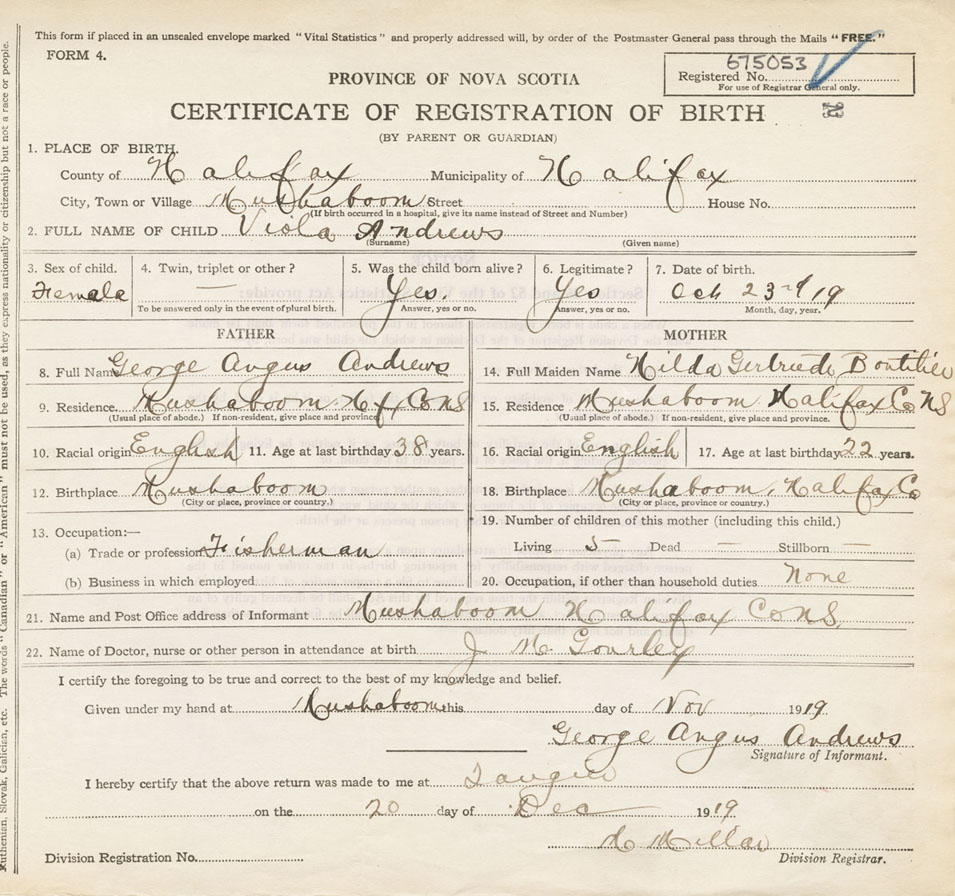 This form if placed in an unsealed envelope marked "Vital Statistics" and properly addressed will, by order of the Postmaster General pass through the Mails "FREE."
FORM 4.
675053
Registered No.
For use of Registrar General only.
PROVINCE OF NOVA SCOTIA
CERTIFICATE OF REGISTRATION OF BIRTH
(BY PARENT OR GUARDIAN)
1. PLACE OF BIRTH.
County of Halifax Municipality of Halifax
City, Town or Village Mushaboom Street House No.
(If birth occurred in a hospital, give its name instead of Street and Number)
2. FULL NAME OF CHILD Viola Andrews
(Surname) (Given name)
3. Sex of child. 4. Twin, triplet or other? 5. Was the child born alive? 6. Legitimate? 7. Date of birth.
Femala — Yes. Yes Oct 23rd 19
To be answered only in the event of plural birth. Answer, yes or no. Answer, yes or no. Month, day, year.
FATHER MOTHER
8. Full Name George Angus Andrews 14. Full Maiden Name Hilda Gertrude Boutilier
9. Residence Mushaboom Hfx Co NS 15. Residence Mushaboom Halifax Co NS
(Usual place of abode.) If non-resident, give place and province. (Usual place of abode.) If non-resident, give place and province.
10. Racial origin English 11. Age at last birthday 38 years. 16. Racial origin English 17. Age at last birthday 22 years.
12. Birthplace Mushaboom 18. Birthplace Mushaboom, Halifax Co
(City or place, province or country.) (City or place, province or country.)
13. Occupation:— 19. Number of children of this mother (including this child.)
(a) Trade or profession Fisherman Living 5 Dead — Stillborn —
(b) Business in which employed 20. Occupation, if other than household duties None
21. Name and Post Office address of Informant Mushaboom Halifax Co NS.
22. Name of Doctor, nurse or other person in attendance at birth J Mc Gourley
I certify the foregoing to be true and correct to the best of my knowledge and belief.
Given under my hand at Mushaboom this day of Nov 1919.
George Angus Andrews
Signature of Informant.
I hereby certify that the above return was made to me at Tangier
on the 20 day of Dec 1919
Division Registration No. Division Registrar.
Ruthenian, Slovak, Galician, etc. The words "Canadian" or "American" must not be used, as they express nationality or citizenship but not a race or people.